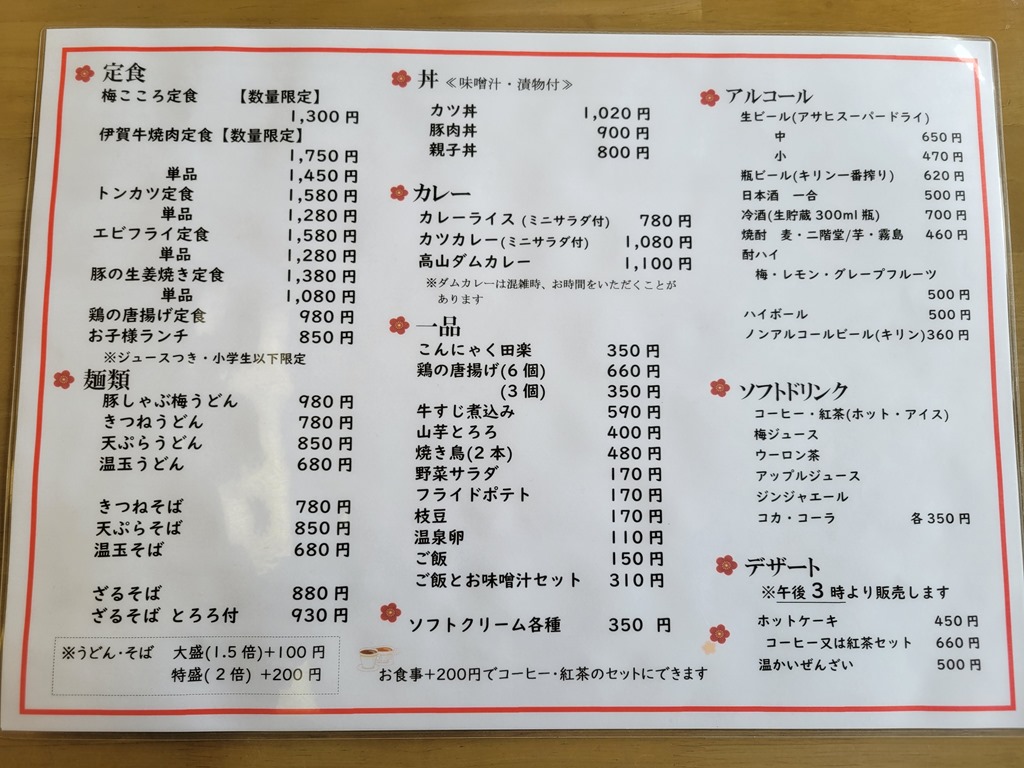 定食
梅こころ定食 【数量限定】
1,300 円
伊賀牛焼肉定食【数量限定】
1,750 円
単品 1,450 円
トンカツ定食 1,580 円
単品 1,280 円
エビフライ定食 1,580 円
単品 1,280 円
豚の生姜焼き定食 1,380 円
単品 1,080 円
鶏の唐揚げ定食 980 円
お子様ランチ 850 円
※ジュースつき・小学生以下限定
麺類
豚しゃぶ梅うどん 980 円
きつねうどん 780 円
天ぷらうどん 850 円
温玉うどん 680 円
きつねそば 780 円
天ぷらそば 850 円
温玉そば 680 円
ざるそば 880 円
ざるそば とろろ付 930 円
※うどん・そば 大盛(1.5 倍)+100 円
特盛( 2 倍) +200 円
丼 ≪味噌汁・漬物付≫
カツ丼 1,020 円
豚肉丼 900 円
親子丼 800 円
カレー
カレーライス (ミニサラダ付) 780 円
カツカレー(ミニサラダ付) 1,080 円
高山ダムカレー 1,100 円
※ダムカレーは混雑時、お時間をいただくことが
あります
一品
こんにゃく田楽 350 円
鶏の唐揚げ(6 個) 660 円
(3 個) 350 円
牛すじ煮込み 590 円
山芋とろろ 400 円
焼き鳥(2 本) 480 円
野菜サラダ 170 円
フライドポテト 170 円
枝豆 170 円
温泉卵 110 円
ご飯 150 円
ご飯とお味噌汁セット 310 円
ソフトクリーム各種 350 円
お食事+200円でコーヒー・紅茶のセットにできます
アルコール
生ビール(アサヒスーパードライ)
中 650 円
小 470 円
瓶ビール(キリン一番搾り) 620 円
日本酒 一合 500 円
冷酒(生貯蔵 300ml 瓶) 700 円
焼酎 麦・二階堂/芋・霧島 460 円
酎ハイ
梅・レモン・グレープフルーツ
500 円
ハイボール 500 円
ノンアルコールビール(キリン)360 円
ソフトドリンク
コーヒー・紅茶(ホット・アイス)
梅ジュース
ウーロン茶
アップルジュース
ジンジャエール
コカ・コーラ 各 350 円
デザート
※午後 3 時より販売します
ホットケーキ 450 円
コーヒー又は紅茶セット 660 円
温かいぜんざい 500 円